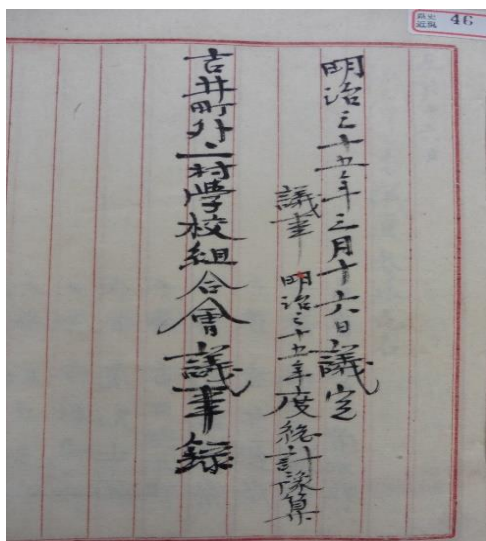 明治三十五年三月十六日議定
議事 明治三十五年度総計豫算
吉井町外一村学校組合會議事録
46